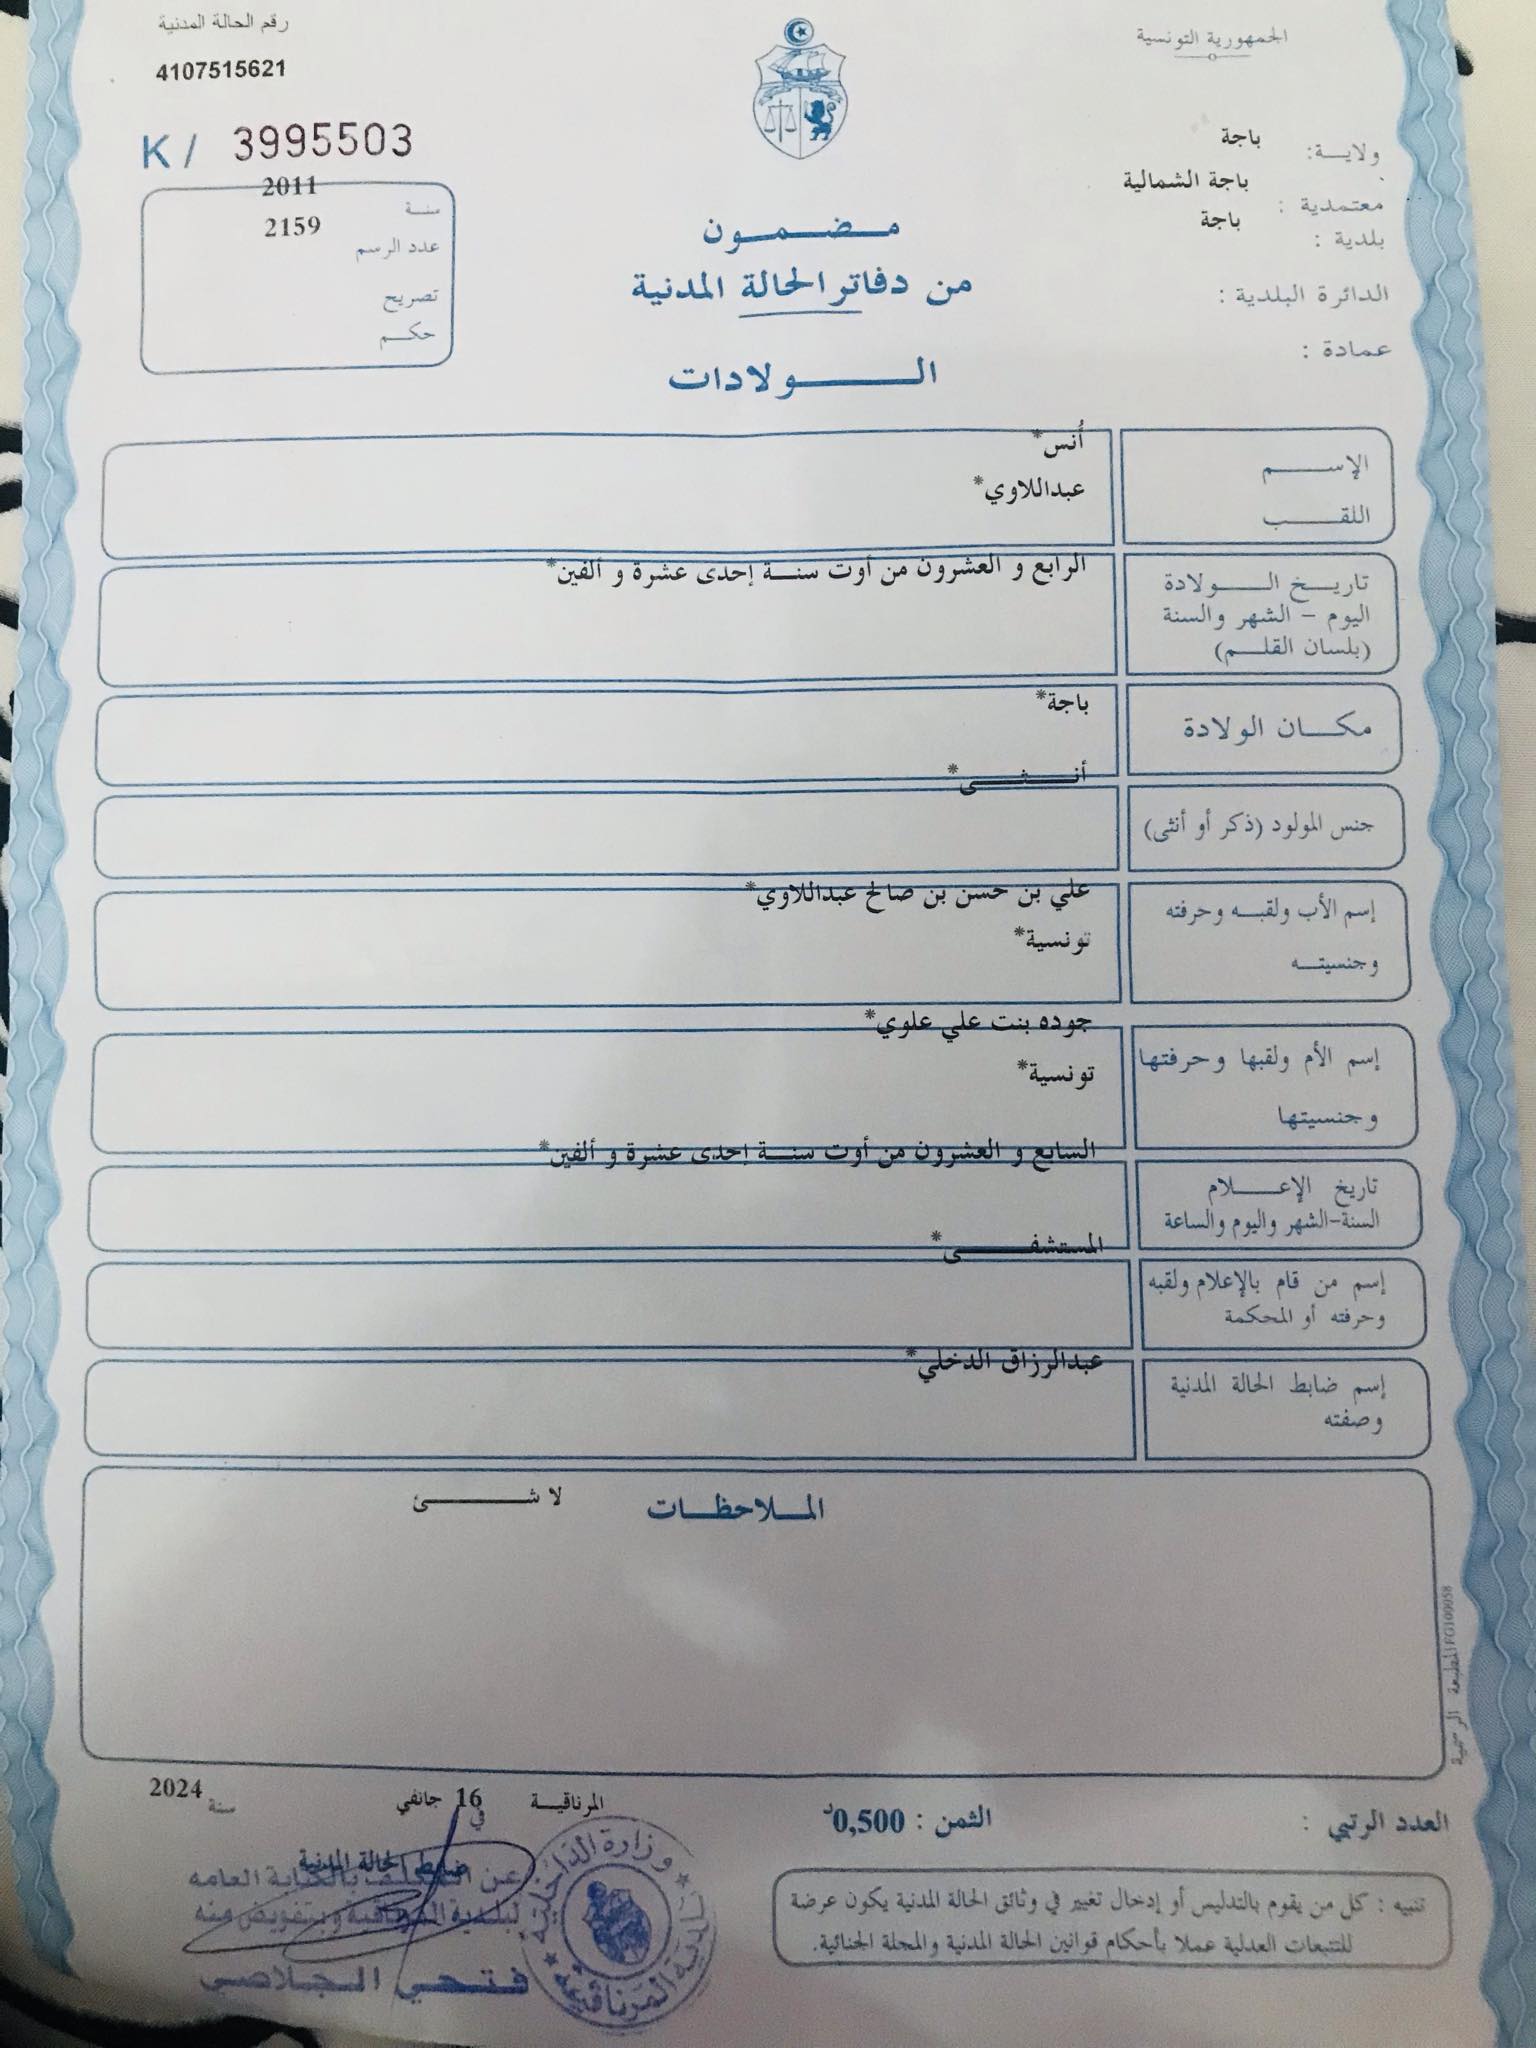 الجمهورية التونسية
رقم الحالة المدنية
4107515621
K / 3995503
ولايـــة: باجة
معتمدية : باجة الشمالية
بلدية : باجة
الدائرة البلدية :
عمادة :
سنة 2011
عدد الرسم 2159
تصريح
حكم
مضمون
من دفاتر الحالة المدنية
الولادات
الإسم أُنس*
اللقب عبداللاوي*
تاريخ الولادة
اليوم - الشهر والسنة
(بلسان القلم)
الرابع و العشرون من أوت سنة إحدى عشرة و ألفين*
مكان الولادة باجة*
جنس المولود (ذكر أو أنثى) أنثى*
إسم الأب ولقبه وحرفته علي بن حسن بن صالح عبداللاوي*
وجنسيته تونسية*
إسم الأم ولقبها وحرفتها جوده بنت علي علوي*
وجنسيتها تونسية*
تاريخ الإعلام
السنة-الشهر واليوم والساعة
السابع و العشرون من أوت سنة إحدى عشرة و ألفين*
إسم من قام بالإعلام ولقبه
وحرفته أو المحكمة
المستشفى*
إسم ضابط الحالة المدنية
وصفته
عبدالرزاق الدخلي*
الملاحظات لا شئ
المطبعة الرسمية FG100058
العدد الرتبي :
الثمن : 0,500د
المرناقية في 16 جانفي سنة 2024
ضابط الحالة المدنية
عن المكلف بالكتابة العامه
لبلدية المرناقية وبتفويض منه
فتحي الجلاصي
وزارة الداخلية
بلدية المرناقية
تنبيه : كل من يقوم بالتدليس أو إدخال تغيير في وثائق الحالة المدنية يكون عرضة
للتتبعات العدلية عملا بأحكام قوانين الحالة المدنية والمجلة الجنائية.